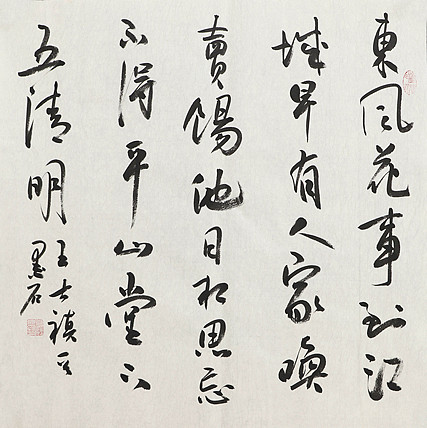 東風花事到江
城早有人家喚
賣餳他日相思忘
不得平山堂下
五清明
王士禛
墨石